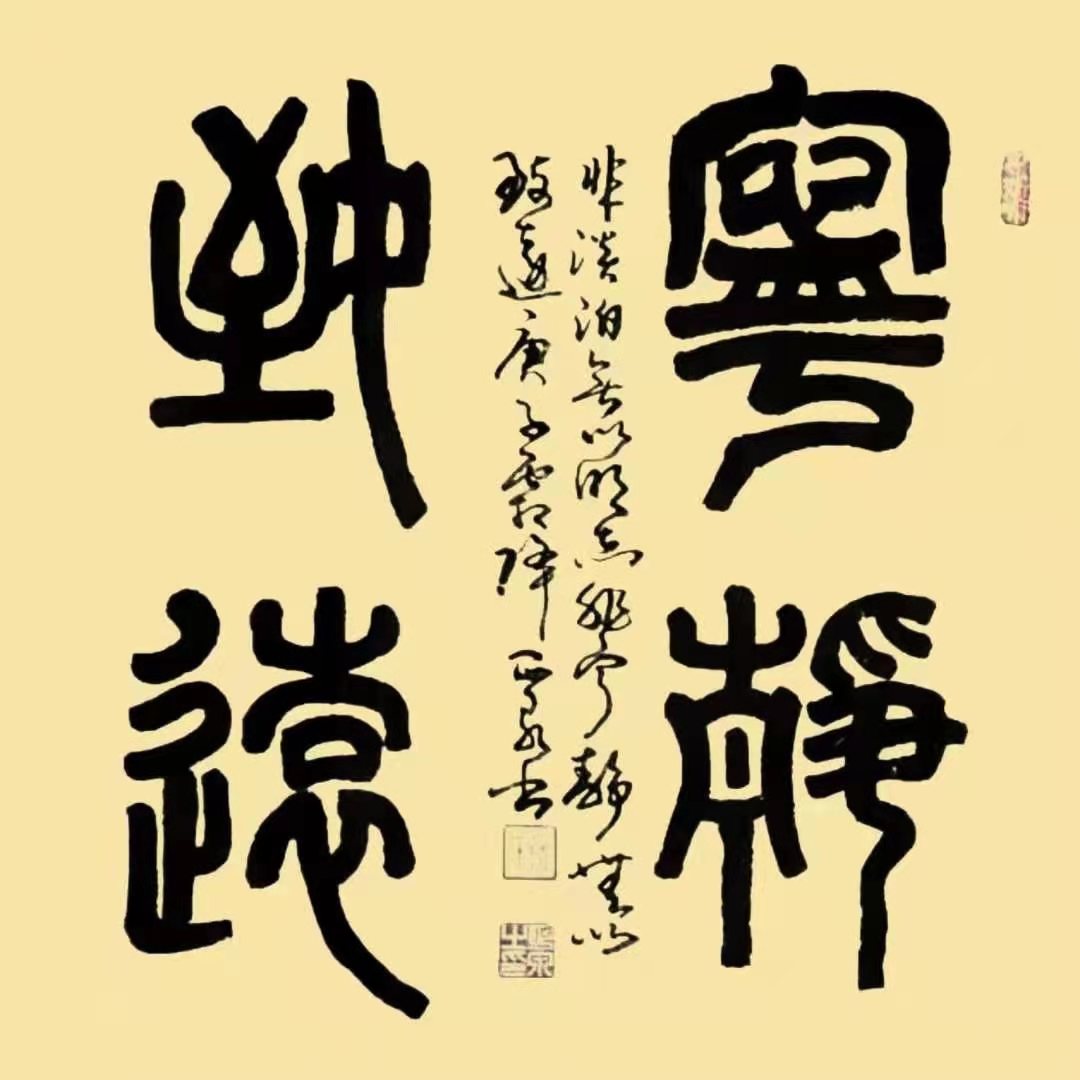 寧靜
非淡泊無以明志非寧靜無以
致遠庚子霜降泉书
致遠